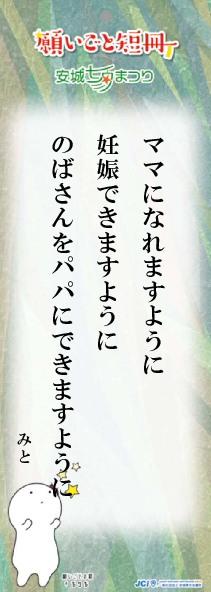 願いごと短冊
安城七夕まつり
ママになれますように
妊娠できますように
のばさんをパパにできますように
みと
JCI